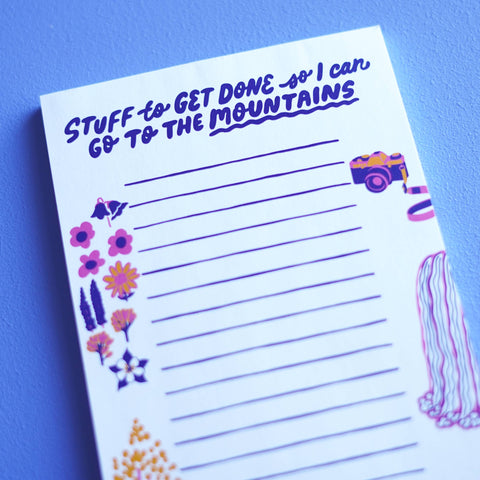 STUFF to GET DONE so I can
GO TO THE MOUNTAINS